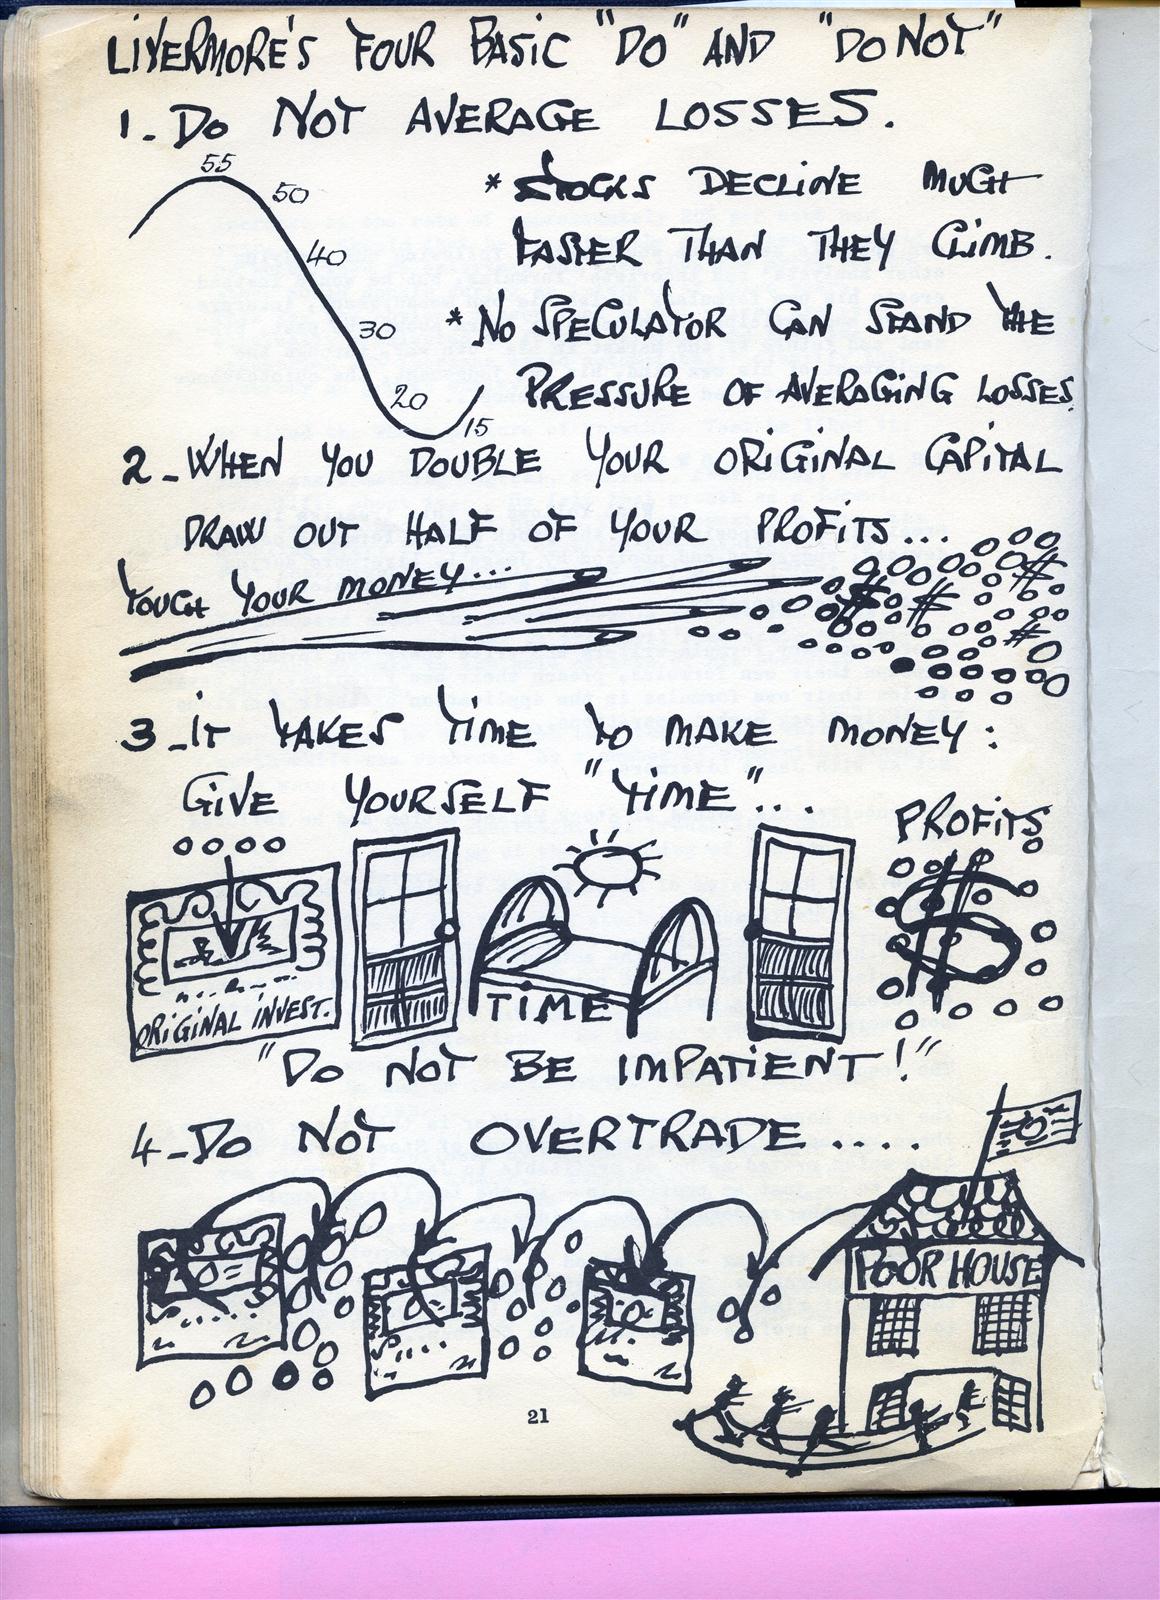 LIVERMORE'S FOUR BASIC "DO" AND "DO NOT"
1- DO NOT AVERAGE LOSSES.
55
50
40
30
20
15
* STOCKS DECLINE MUCH
FASTER THAN THEY CLIMB.
* NO SPECULATOR CAN STAND THE
PRESSURE OF AVERAGING LOSSES.
2- WHEN YOU DOUBLE YOUR ORIGINAL CAPITAL
DRAW OUT HALF OF YOUR PROFITS...
TOUCH YOUR MONEY...
$ $ $ $
3- IT TAKES TIME TO MAKE MONEY:
GIVE YOURSELF "TIME"...
PROFITS
$
ORIGINAL INVEST.
TIME
"DO NOT BE IMPATIENT!"
4- DO NOT OVERTRADE....
POOR HOUSE
21